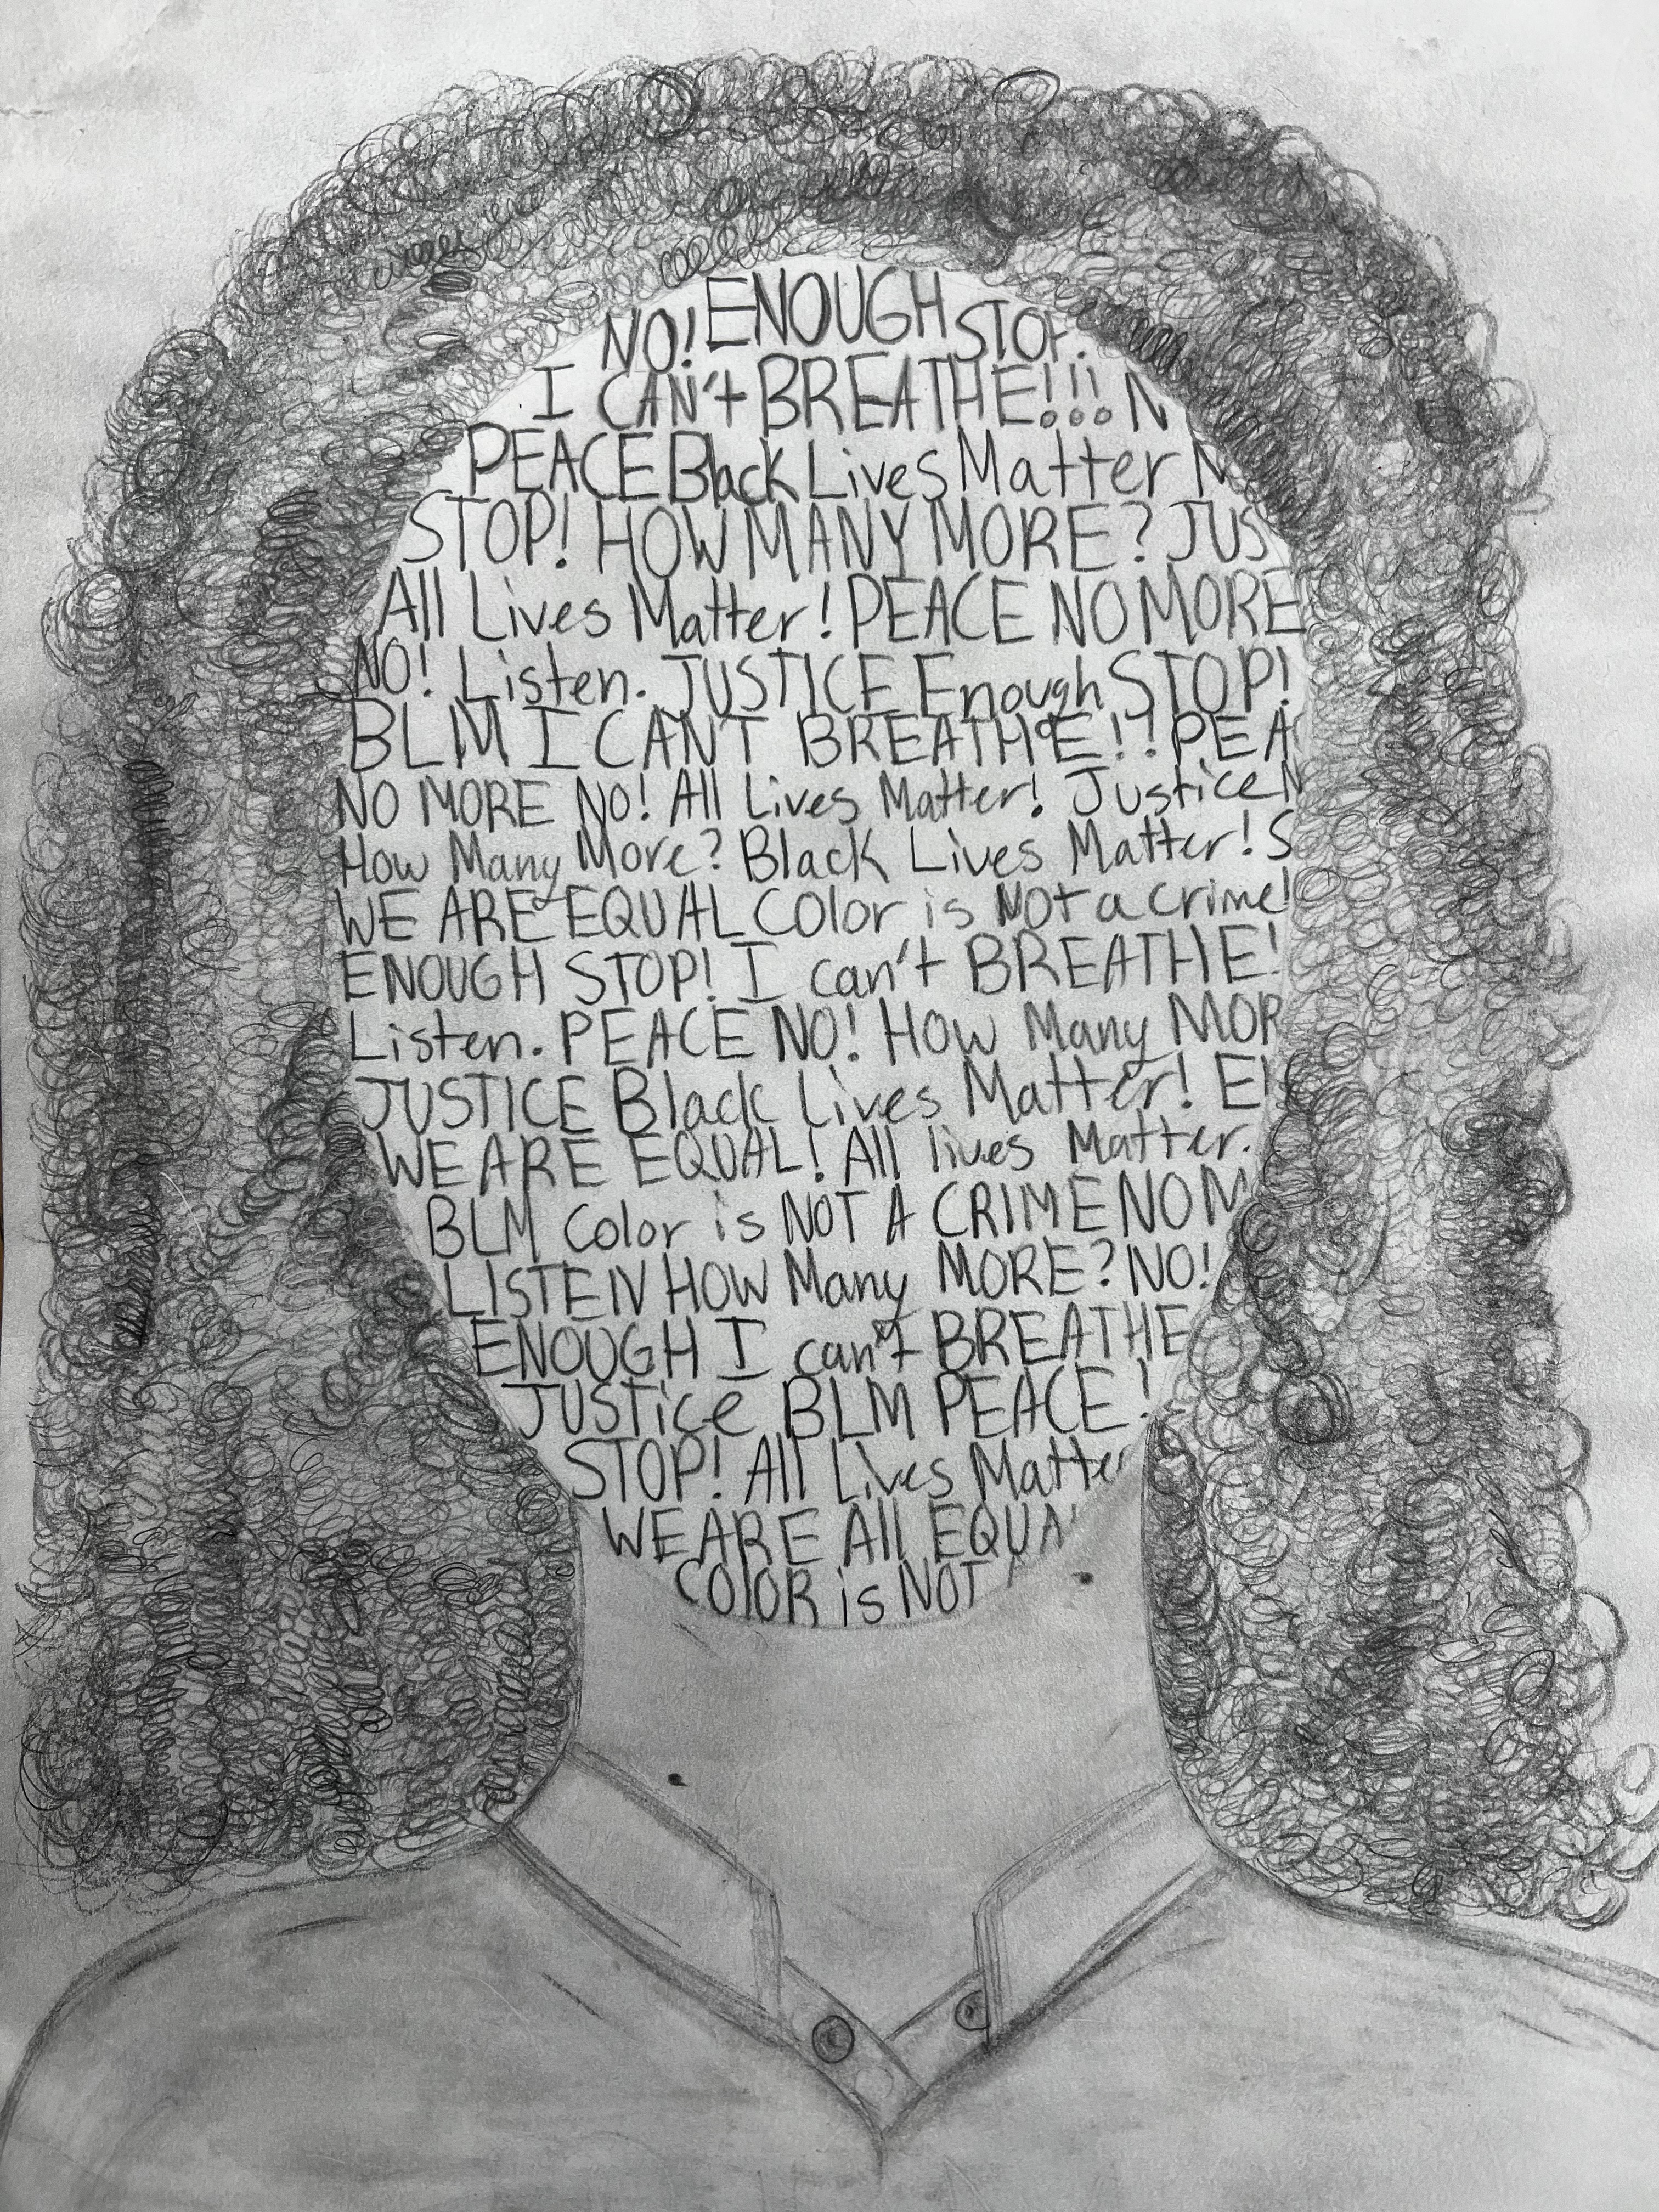 NO! ENOUGH STOP!
I CAN't BREATHE!!! N
PEACE Black Lives Matter N
STOP! HOW MANY MORE? JUS
All Lives Matter! PEACE NO MORE
NO! Listen. JUSTICE Enough STOP!
BLM I CAN'T BREATHE!! PEA
NO MORE NO! All Lives Matter! Justice N
How Many More? Black Lives Matter! S
WE ARE EQUAL COlor is Not a crime!
ENOUGH STOP! I can't BREATHE!
Listen. PEACE NO! How Many MOR
JUSTICE Black Lives Matter!
WE ARE EQUAL! All lives Matter.
BLM Color is NOT A CRIME NO M
LISTEN HOW Many MORE? NO!
ENOUGH I can't BREATHE
JUSTice BLM PEACE!
STOP! All Lives Matter
WE ARE All EQUA
COlOR is NOT